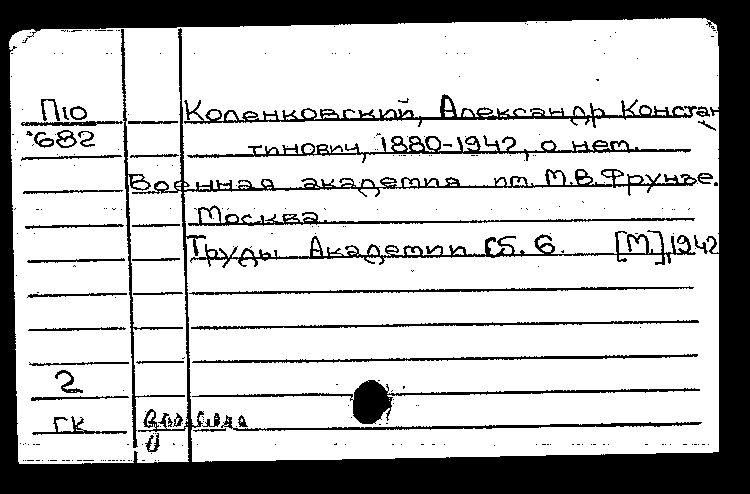 П10 Коленковский, Александр Констан-
682 тинович, 1880-1942, о нем.
Военная академия им. М.В. Фрунзе.
Москва.
Труды Академии Сб. 6. [М.], 1942
2
ГК